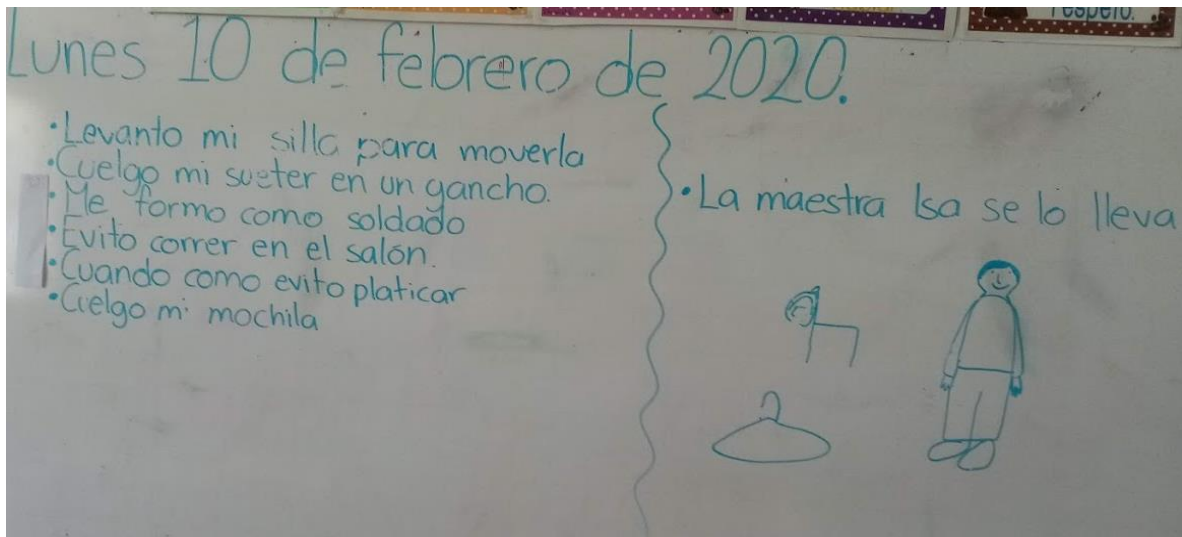 respeto.
Lunes 10 de febrero de 2020.
•Levanto mi silla para moverla
•Cuelgo mi sueter en un gancho.
•Me formo como soldado
•Evito correr en el salón.
•Cuando como evito platicar
•Cuelgo mi mochila
•La maestra Isa se lo lleva